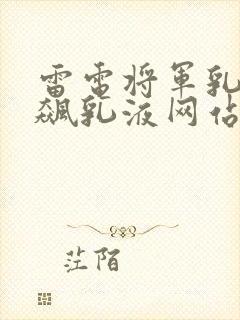 雷电将军乳
飙乳液网站
茫陌